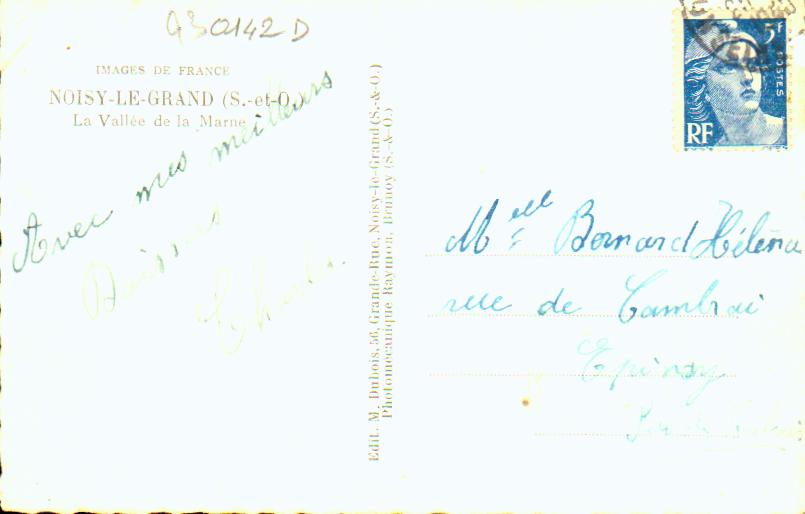 930142 D
IMAGES DE FRANCE
NOISY-LE-GRAND (S.-et-O.)
La Vallée de la Marne
Avec mes meilleurs
Baisers
Charles
Edit. M. Dubois, 56, Grande-Rue, Noisy-le-Grand (S.-&-O.)
Photomécanique Raymon, Brunoy (S.-&-O.)
5F
POSTES
RF
Melle Bernard Hélèna
rue de Cambrai
Epinay